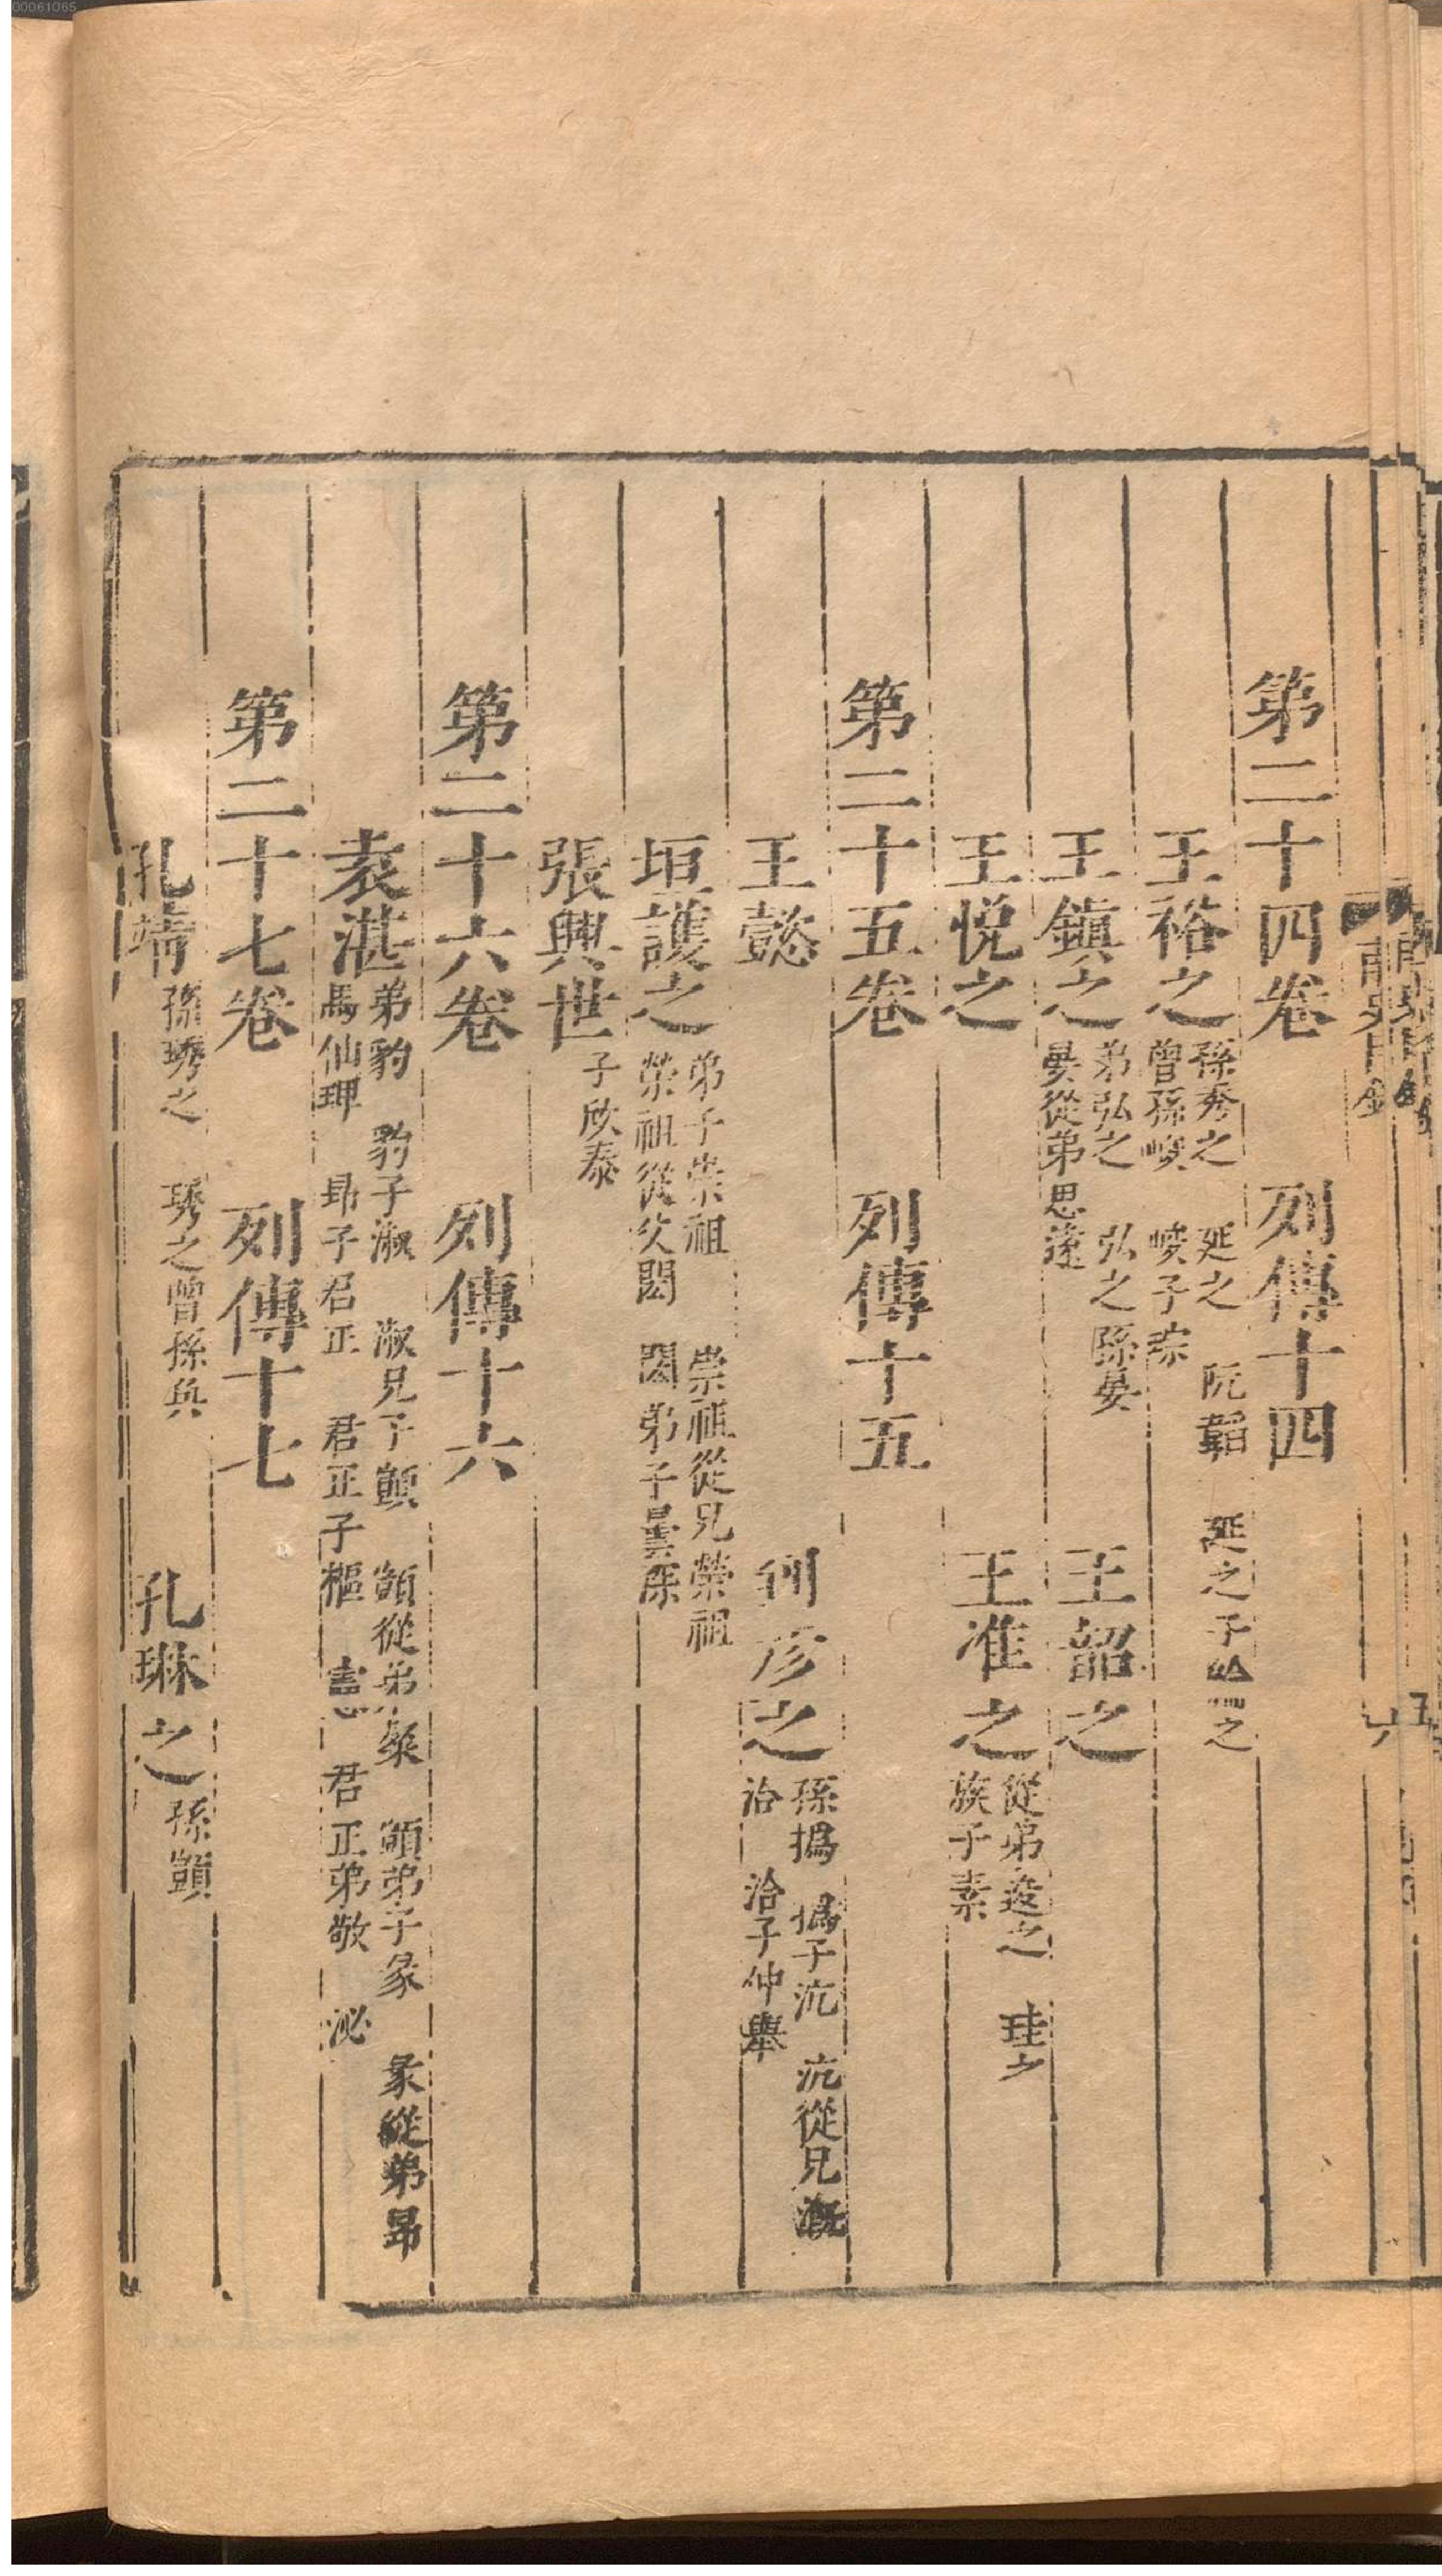 第二十四卷 列傳十四
王裕之 孫秀之 延之 阮韜 延之子綸之
曾孫峻 峻子琮
王鎮之 弟弘之 弘之孫晏
晏從弟思遠
王韶之
王悅之
王准之 從弟逡之 珪之
族子素
第二十五卷 列傳十五
王懿
到彥之 孫撝 撝子沆 沆從兄溉
洽 洽子仲舉
垣護之 弟子崇祖 崇祖從兄榮祖
榮祖從父閎 閎弟子曇深
張興世 子欣泰
第二十六卷 列傳十六
袁湛 弟豹 豹子淑 淑兄子顗 顗從弟粲 顗弟子彖 彖從弟昂
馬仙琕 昂子君正 君正子樞 憲 君正弟敬 泌
第二十七卷 列傳十七
孔靖 孫琇之 琇之曾孫奐
孔琳之 孫顗
南史目錄
六
00061065